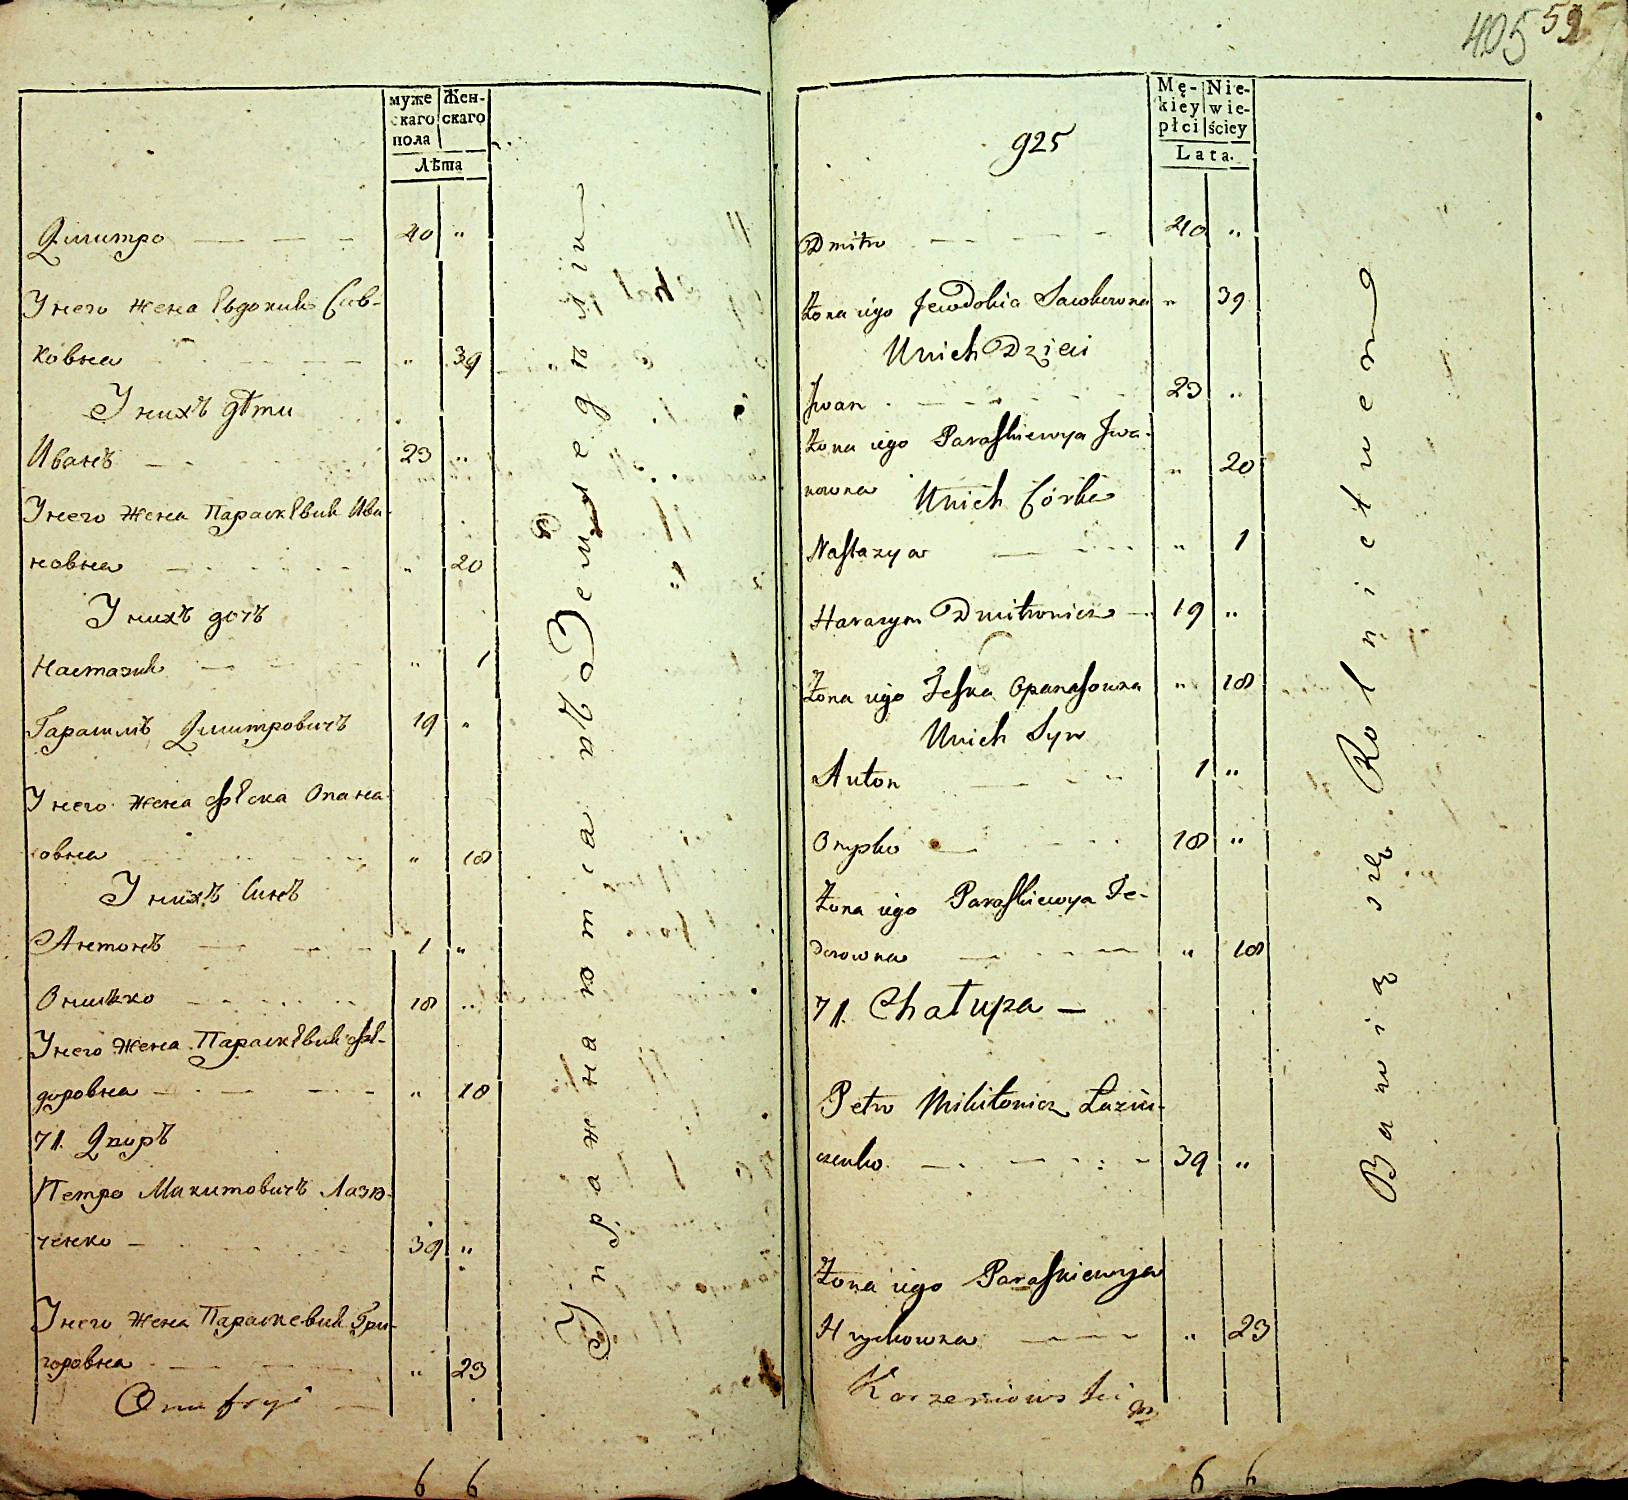 муже
скаго
пола
Жен-
скаго
Лѣта
Дмитро 40 "
У него жена Евдокия Сав-
ковна " 39
У нихъ дѣти
Иванъ 23 "
У него жена Параскевия Ива-
новна " 20
У нихъ дочь
Настазия " 1
Гарасимъ Дмитровичъ 19 "
У него жена Феска Опана-
совна " 18
У нихъ Синъ
Антонъ 1 "
Онишко 18 "
У него жена Параскевия Фе-
доровна " 18
71. Двиръ
Петро Микитовичъ Лазю-
ченко 39 "
У него жена Параскевия Гри-
горовна " 23
Onufryi
6 6
Упражнаются въ Земледѣліи
405 59
925
Mę-
kiey
płci
Nie-
wie-
ściey
Lata.
Dmitro 40 "
Żona iego Jewdokia Sawkowna " 39
U nich Dzieci
Jwan 23 "
Żona iego Paraskiewya Jwa-
nowna " 20
U nich Córka
Nastazya " 1
Harasym Dmitrowicz 19 "
Żona iego Feska Opanasowna " 18
U nich Syn
Anton 1 "
Onysko 18 "
Żona iego Paraskiewya Fe-
dorowna " 18
71. Chałupa
Petro Mikitowicz Laziu-
czenko 39 "
Żona iego Paraskiewya
Hryhorowna " 23
Korzeniowski
6 6
Bawią się Rolnictwem